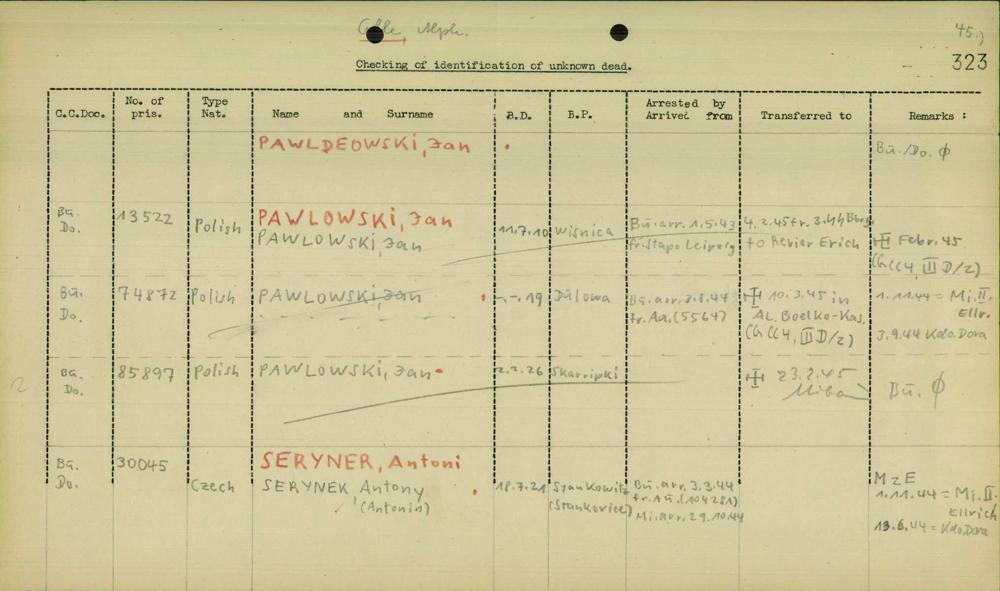 Celle, Alph.
45.)
323
Checking of identification of unknown dead.
C.C.Doc. No. of pris. Type Nat. Name and Surname B.D. B.P. Arrested by Arrived from Transferred to Remarks :
PAWLDEOWSKI, Jan Bū./Do. ϕ
Bū. Do. 13522 Polish PAWLOWSKI, Jan
PAWLOWSKI, Jan 11.7.10 Wisnica Bū. arr. 1.5.43 fr. Stapo Leipzig 4.2.45 fr. to Revier Erich Febr. 45
(GCC4, III D/2)
Bū. Do. 74872 Polish PAWLOWSKI, Jan -.-.19 Dulowa Bū. arr. fr. Au. (5564) 10.3.45 in
AL. Boelko-Kas.
(GCC4, III D/2) 1.11.44 = Mi. II.
Ellr.
3.9.44 Kdo. Dora
2
Bū. Do. 85897 Polish PAWLOWSKI, Jan 2.2.26 Skarripki 23.2.45 Bū. ϕ
Bū. Do. 30045 Czech SERYNER, Antoni
SERYNEK, Antony
(Antonin) 18.7.21 Stankowitz
(Stankovice) Bū. arr. 3.3.44
fr. Au. (104281)
Mi. arr. 29.10.44 MzE
1.11.44 = Mi. II.
Ellrich
13.6.44 = Kdo. Dora